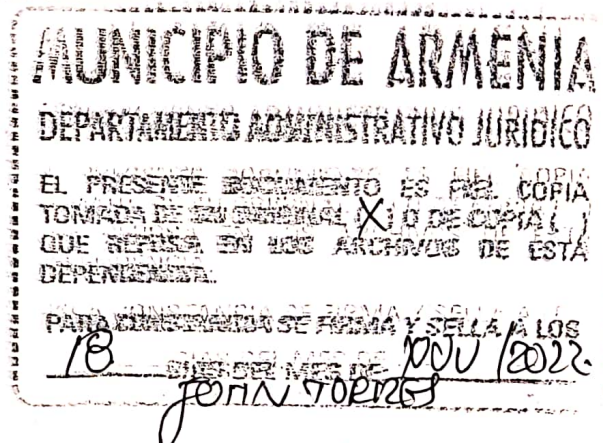 MUNICIPIO DE ARMENIA
DEPARTAMENTO ADMINISTRATIVO JURIDICO
EL PRESENTE DOCUMENTO ES FIEL COPIA
TOMADA DE SU ORIGINAL (X) O DE COPIA ( )
QUE REPOSA EN LOS ARCHIVOS DE ESTA
DEPENDENCIA.
PARA CONSTANCIA SE FIRMA Y SELLA A LOS
18 DIAS DEL MES DE NOV /2022.
JOHN TORRES